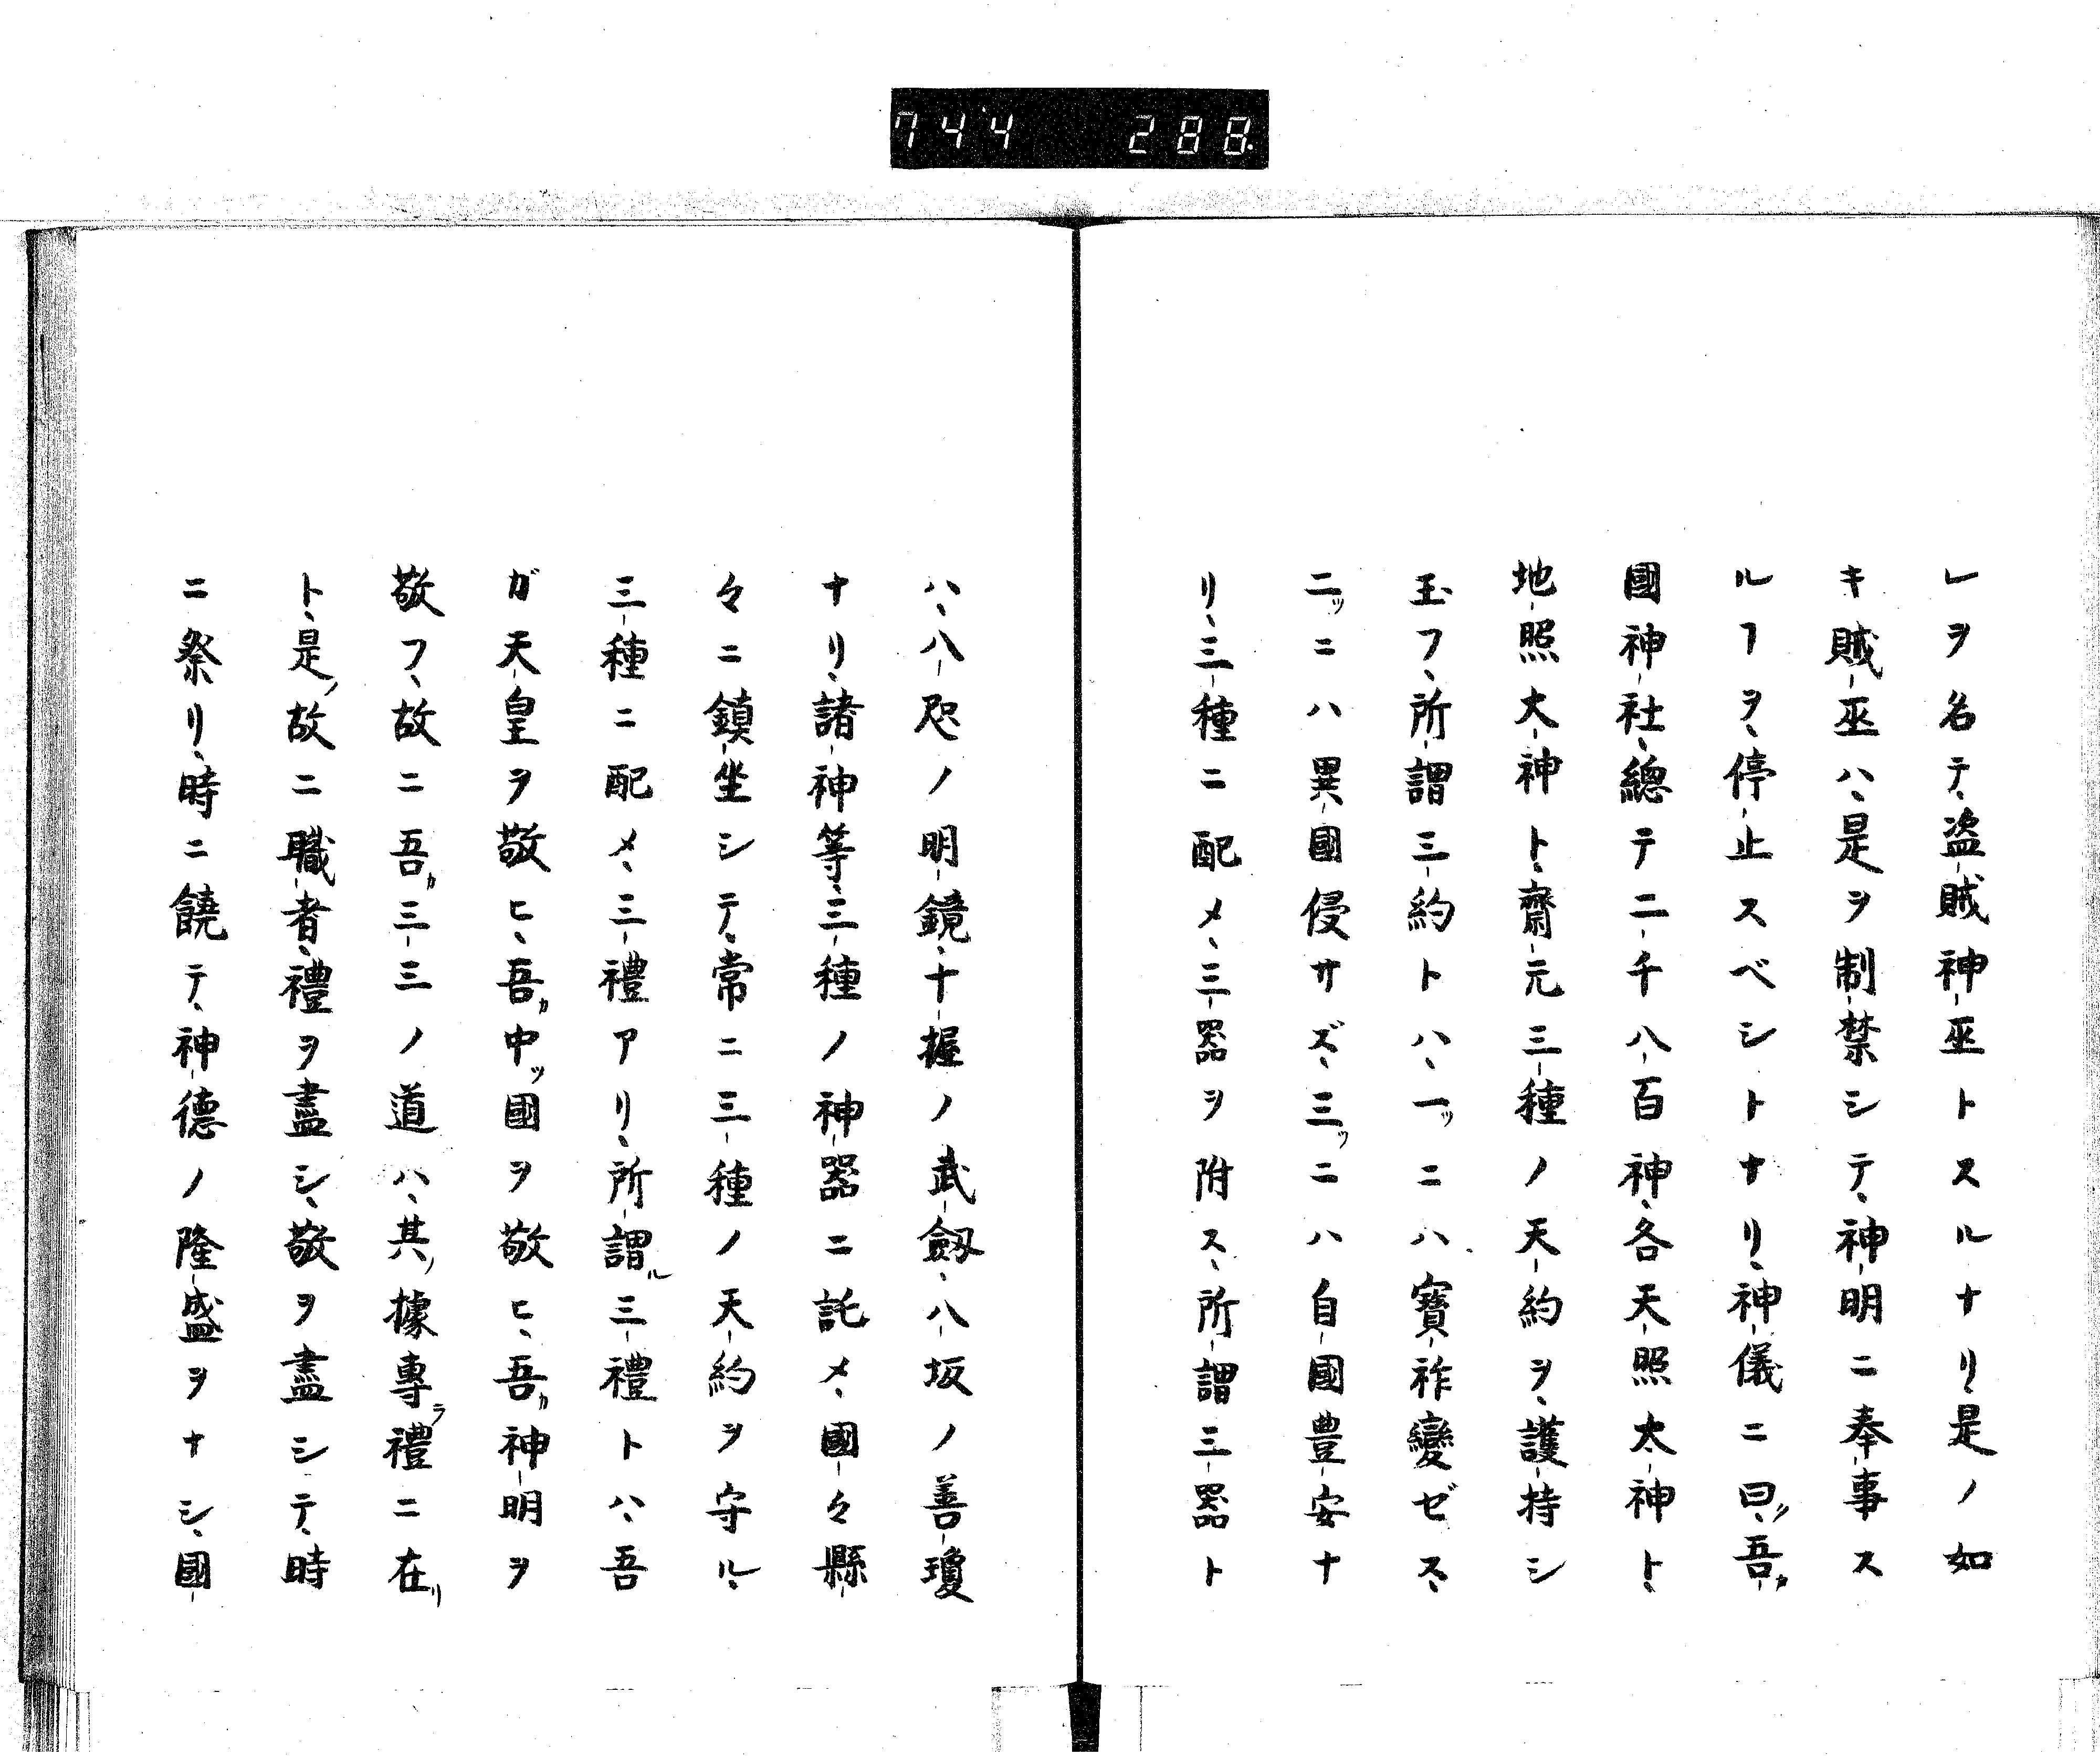 744 288
レヲ名テ、盗賊神巫トスルナリ、是ノ如
キ賊巫ハ、是ヲ制禁シテ、神明ニ奉事ス
ルヿヲ、停止スベシトナリ、神儀ニ曰ク、吾カ
國神社、總テ二千八百神、各天照太神ト、
地照大神ト、齋元三種ノ天約ヲ、護持シ
玉フ、所謂三約トハ、一ツニハ、寶祚變ゼス、
二ツニハ異國侵サズ、三ツニハ自國豊安ナ
リ、三種ニ配メ、三器ヲ附ス、所謂三器ト
ハ、八咫ノ明鏡、十握ノ武劔、八坂ノ善瓊
ナリ、諸神等、三種ノ神器ニ託メ、國々縣
々ニ鎮坐シテ、常ニ三種ノ天約ヲ守ル、
三種ニ配メ、三禮アリ、所謂ル三禮トハ、吾
ガ天皇ヲ敬ヒ、吾カ中ツ國ヲ敬ヒ、吾カ神明ヲ
敬フ、故ニ吾カ三三ノ道ハ、其ノ據專ラ禮ニ在リ
ト、是ノ故ニ職者、禮ヲ盡シ、敬ヲ盡シテ、時
ニ祭リ、時ニ饒テ、神德ノ隆盛ヲナシ、國